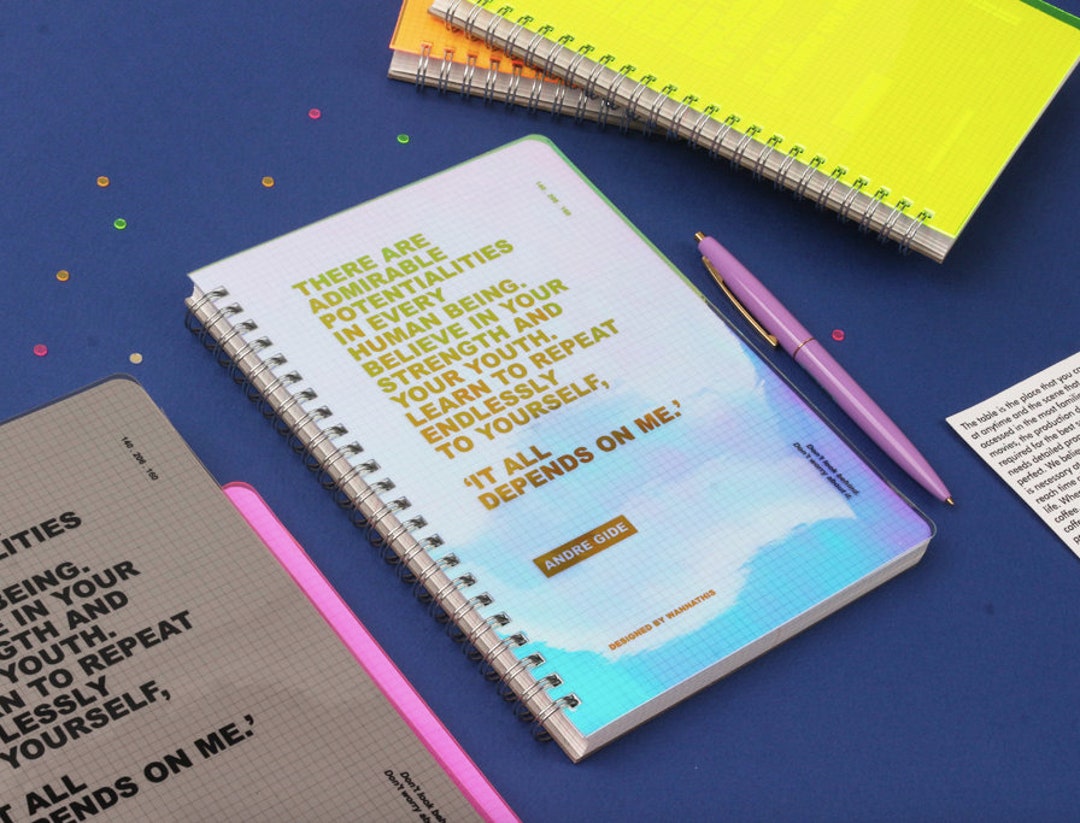 140 . 206 . 150
THERE ARE
ADMIRABLE
POTENTIALITIES
IN EVERY
HUMAN BEING.
BELIEVE IN YOUR
STRENGTH AND
YOUR YOUTH.
LEARN TO REPEAT
ENDLESSLY
TO YOURSELF,
‘IT ALL
DEPENDS ON ME.’
Don't look behind.
Don't worry about it.
ANDRE GIDE
DESIGNED BY WANNATHIS
140 . 206 . 150
LITIES
BEING.
E IN YOUR
GTH AND
YOUTH.
N TO REPEAT
LESSLY
YOURSELF,
T ALL
PENDS ON ME.’
Don't look beh
Don't worry ab
The table is the place that you ca
at anytime and the scene that
accessed in the most famili
movies, the production d
required for the best s
needs detailed proc
perfect. We belie
is necessary o
reach time
life. Whe
coffee
coff